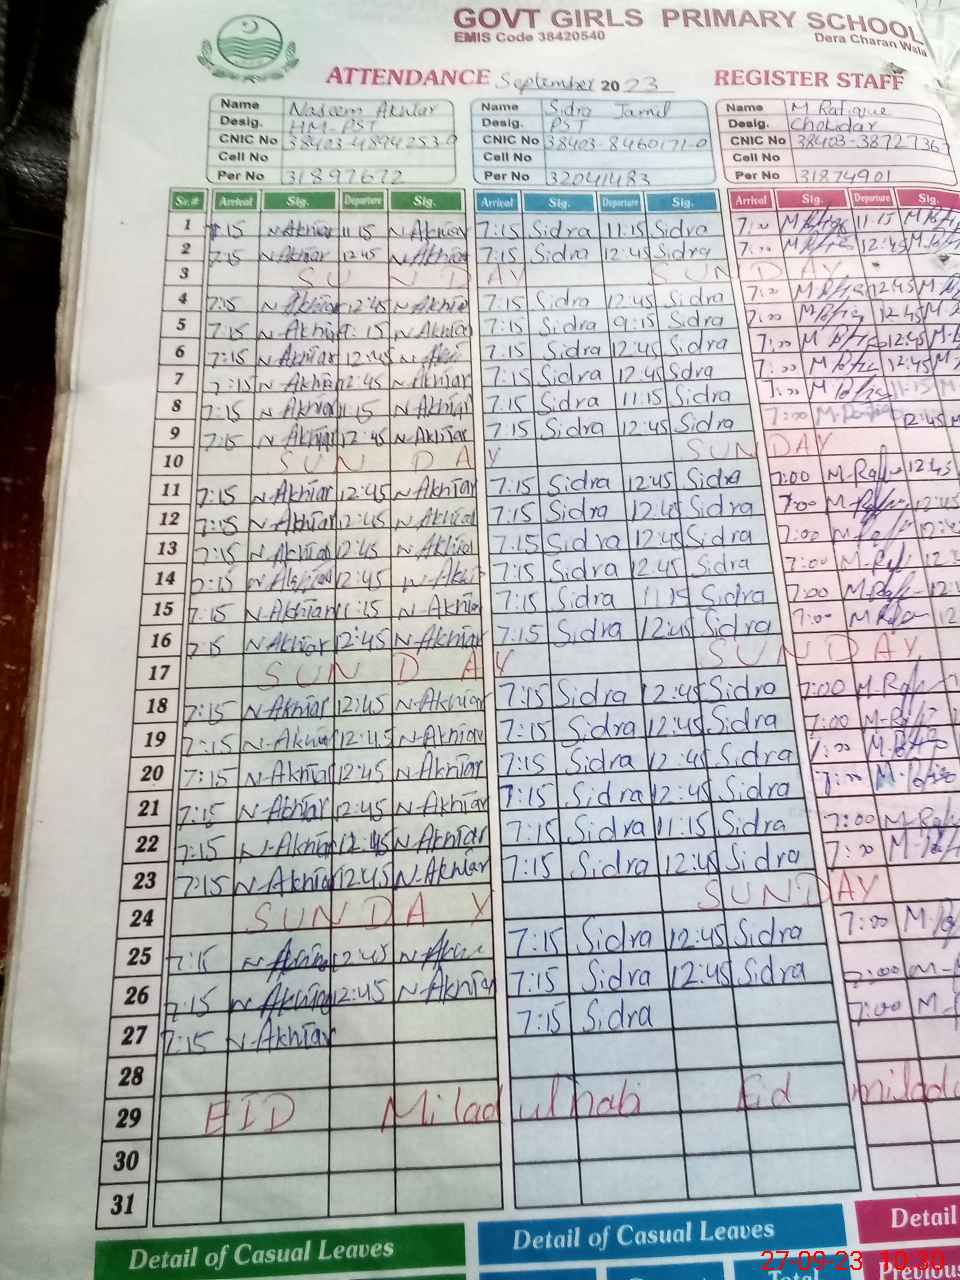 GOVT GIRLS PRIMARY SCHOOL
EMIS Code 38420540 Dera Charan Wala
ATTENDANCE September 2023 REGISTER STAFF
Name Naseem Akhtar Name Sidra Jamil Name M Rafique
Desig. HM-PST Desig. PST Desig. Chokidar
CNIC No 38403-4894253-0 CNIC No 38403-8460171-0 CNIC No 38403-3872736
Cell No Cell No Cell No
Per No 31897672 Per No 32041483 Per No 31874901
Sr.# Arrival Sig. Departure Sig. Arrival Sig. Departure Sig. Arrival Sig. Departure Sig.
1 7:15 N-Akhtar 11:15 N-Akhtar 7:15 Sidra 11:15 Sidra 7:00 11:15
2 7:15 N-Akhtar 12:45 N-Akhtar 7:15 Sidra 12:45 Sidra 7:00 12:45
3 SUNDAY SUNDAY
4 7:15 N-Akhtar 12:45 N-Akhtar 7:15 Sidra 12:45 Sidra 7:00 12:45
5 7:15 N-Akhtar 9:15 N-Akhtar 7:15 Sidra 9:15 Sidra 7:00 12:45
6 7:15 N-Akhtar 12:45 7:15 Sidra 12:45 Sidra 7:00 12:45
7 7:15 N-Akhtar 12:45 N-Akhtar 7:15 Sidra 12:45 Sdra 7:00 12:45
8 7:15 N-Akhtar 11:15 N-Akhtar 7:15 Sidra 11:15 Sidra 7:00 11:15
9 7:15 N-Akhtar 12:45 N-Akhtar 7:15 Sidra 12:45 Sidra 7:00 12:45
10 SUNDAY SUNDAY
11 7:15 N-Akhtar 12:45 N-Akhtar 7:15 Sidra 12:45 Sidra 7:00 12:45
12 7:15 N-Akhtar 12:45 N-Akhtar 7:15 Sidra 12:45 Sidra 7:00
13 7:15 N-Akhtar 12:45 N-Akhtar 7:15 Sidra 12:45 Sidra 7:00
14 7:15 12:45 7:15 Sidra 12:45 Sidra 7:00
15 7:15 N-Akhtar 11:15 N-Akhtar 7:15 Sidra 11:15 Sidra 7:00
16 7:15 N-Akhtar 12:45 N-Akhtar 7:15 Sidra 12:45 Sidra 7:00
17 SUNDAY SUNDAY
18 7:15 N-Akhtar 12:45 N-Akhtar 7:15 Sidra 12:45 Sidra 7:00
19 7:15 N-Akhtar 12:45 N-Akhtar 7:15 Sidra 12:45 Sidra 7:00
20 7:15 N-Akhtar 12:45 N-Akhtar 7:15 Sidra 12:45 Sidra 7:00
21 7:15 N-Akhtar 12:45 N-Akhtar 7:15 Sidra 12:45 Sidra 7:00
22 7:15 N-Akhtar 12:45 N-Akhtar 7:15 Sidra 11:15 Sidra 7:00
23 7:15 N-Akhtar 12:45 N-Akhtar 7:15 Sidra 12:45 Sidra 7:00
24 SUNDAY SUNDAY
25 7:15 12:45 7:15 Sidra 12:45 Sidra 7:00
26 7:15 N-Akhtar 12:45 N-Akhtar 7:15 Sidra 12:45 Sidra 7:00
27 7:15 N-Akhtar 7:15 Sidra 7:00
28
29 EID Milad ul nabi Eid milad
30
31
Detail of Casual Leaves Detail of Casual Leaves Detail
Total Previous
27-09-23 10:30